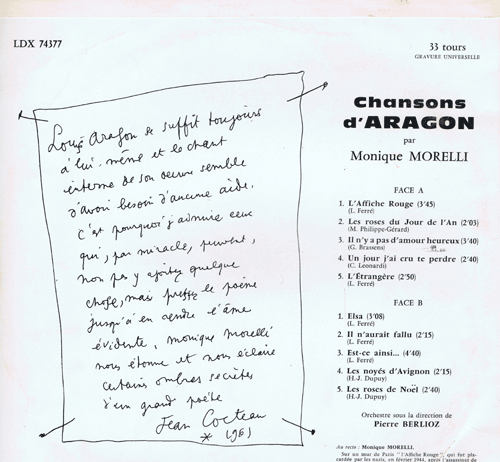 LDX 74377
33 tours
GRAVURE UNIVERSELLE
Louis Aragon se suffit toujours
à lui-même et le chant
interne de son œuvre semble
n'avoir besoin d'aucune aide.
C'est pourquoi j'admire ceux
qui, par miracle, peuvent,
non pas y ajouter quelque
chose, mais presser le poème
jusqu'à en rendre l'âme
évidente. Monique Morelli
nous étonne et nous éclaire
certaines ombres secrètes
d'un grand poète
Jean Cocteau
* 1961
Chansons
d'ARAGON
par
Monique MORELLI
FACE A
1. L'Affiche Rouge (3'45)
(L. Ferré)
2. Les roses du Jour de l'An (2'03)
(M. Philippe-Gérard)
3. Il n'y a pas d'amour heureux (3'40)
(G. Brassens)
4. Un jour j'ai cru te perdre (2'40)
(C. Leonardi)
5. L'Étrangère (2'50)
(L. Ferré)
FACE B
1. Elsa (3'08)
(L. Ferré)
2. Il n'aurait fallu (2'15)
(L. Ferré)
3. Est-ce ainsi... (4'40)
(L. Ferré)
4. Les noyés d'Avignon (2'15)
(H.-J. Dupuy)
5. Les roses de Noël (2'40)
(H.-J. Dupuy)
Orchestre sous la direction de
Pierre BERLIOZ
Au recto : Monique MORELLI.
Sur un mur de Paris "l'Affiche Rouge", qui fut pla-
cardée par les nazis, en février 1944, après l'assassinat de